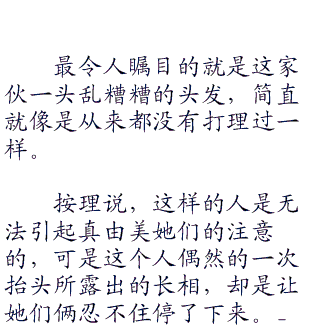 最令人瞩目的就是这家
伙一头乱糟糟的头发，简直
就像是从来都没有打理过一
样。
按理说，这样的人是无
法引起真由美她们的注意
的，可是这个人偶然的一次
抬头所露出的长相，却是让
她们俩忍不住停了下来。_